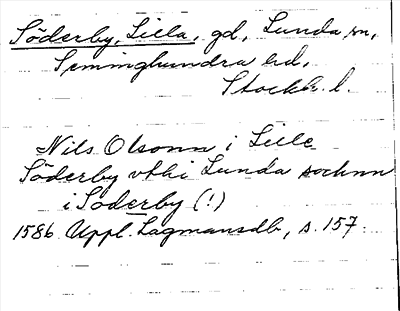 Söderby, Lilla, gd, Lunda sn,
Seminghundra hd,
Stockh. l.
Nils Olsonn i Lille
Söderby vthi Lunda sochnn
i Söderby (!)
1586 Uppl. Lagmansdb, s. 157.